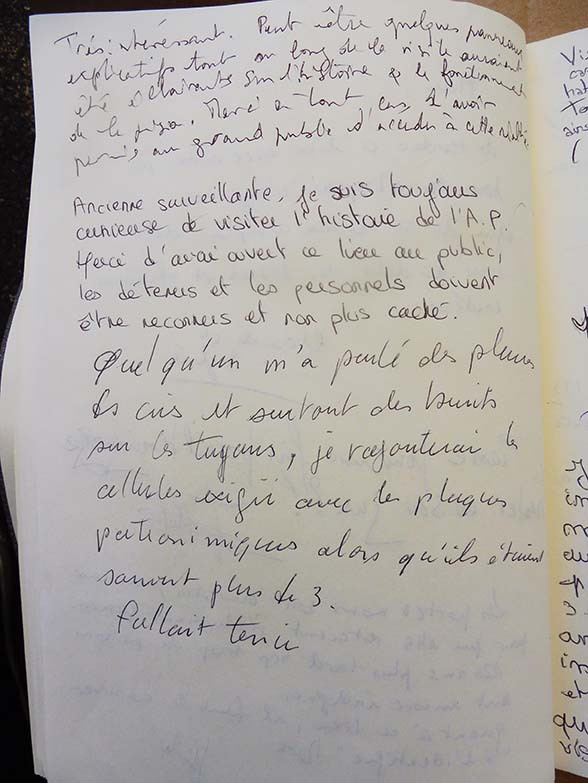 Très intéressant. Peut être quelques panneaux
explicatifs tout au long de la visite auraient
été éclairants sur l'histoire & le fonctionnement
de la prison. Merci en tout cas d'avoir
permis au grand public d'accéder à cette réalité.
Ancienne surveillante, je suis toujours
curieuse de visiter l'histoire de l'A.P.
Merci d'avoir ouvert ce lieu au public,
les détenus et les personnels doivent
être reconnus et non plus caché.
Quelqu'un m'a parlé des pleurs
les cris et surtout des bruits
sur les tuyaux, je rajouterai les
cellules exigü avec les plaques
patronimiques alors qu'ils étaient
souvent plus de 3.
Fallait tenir